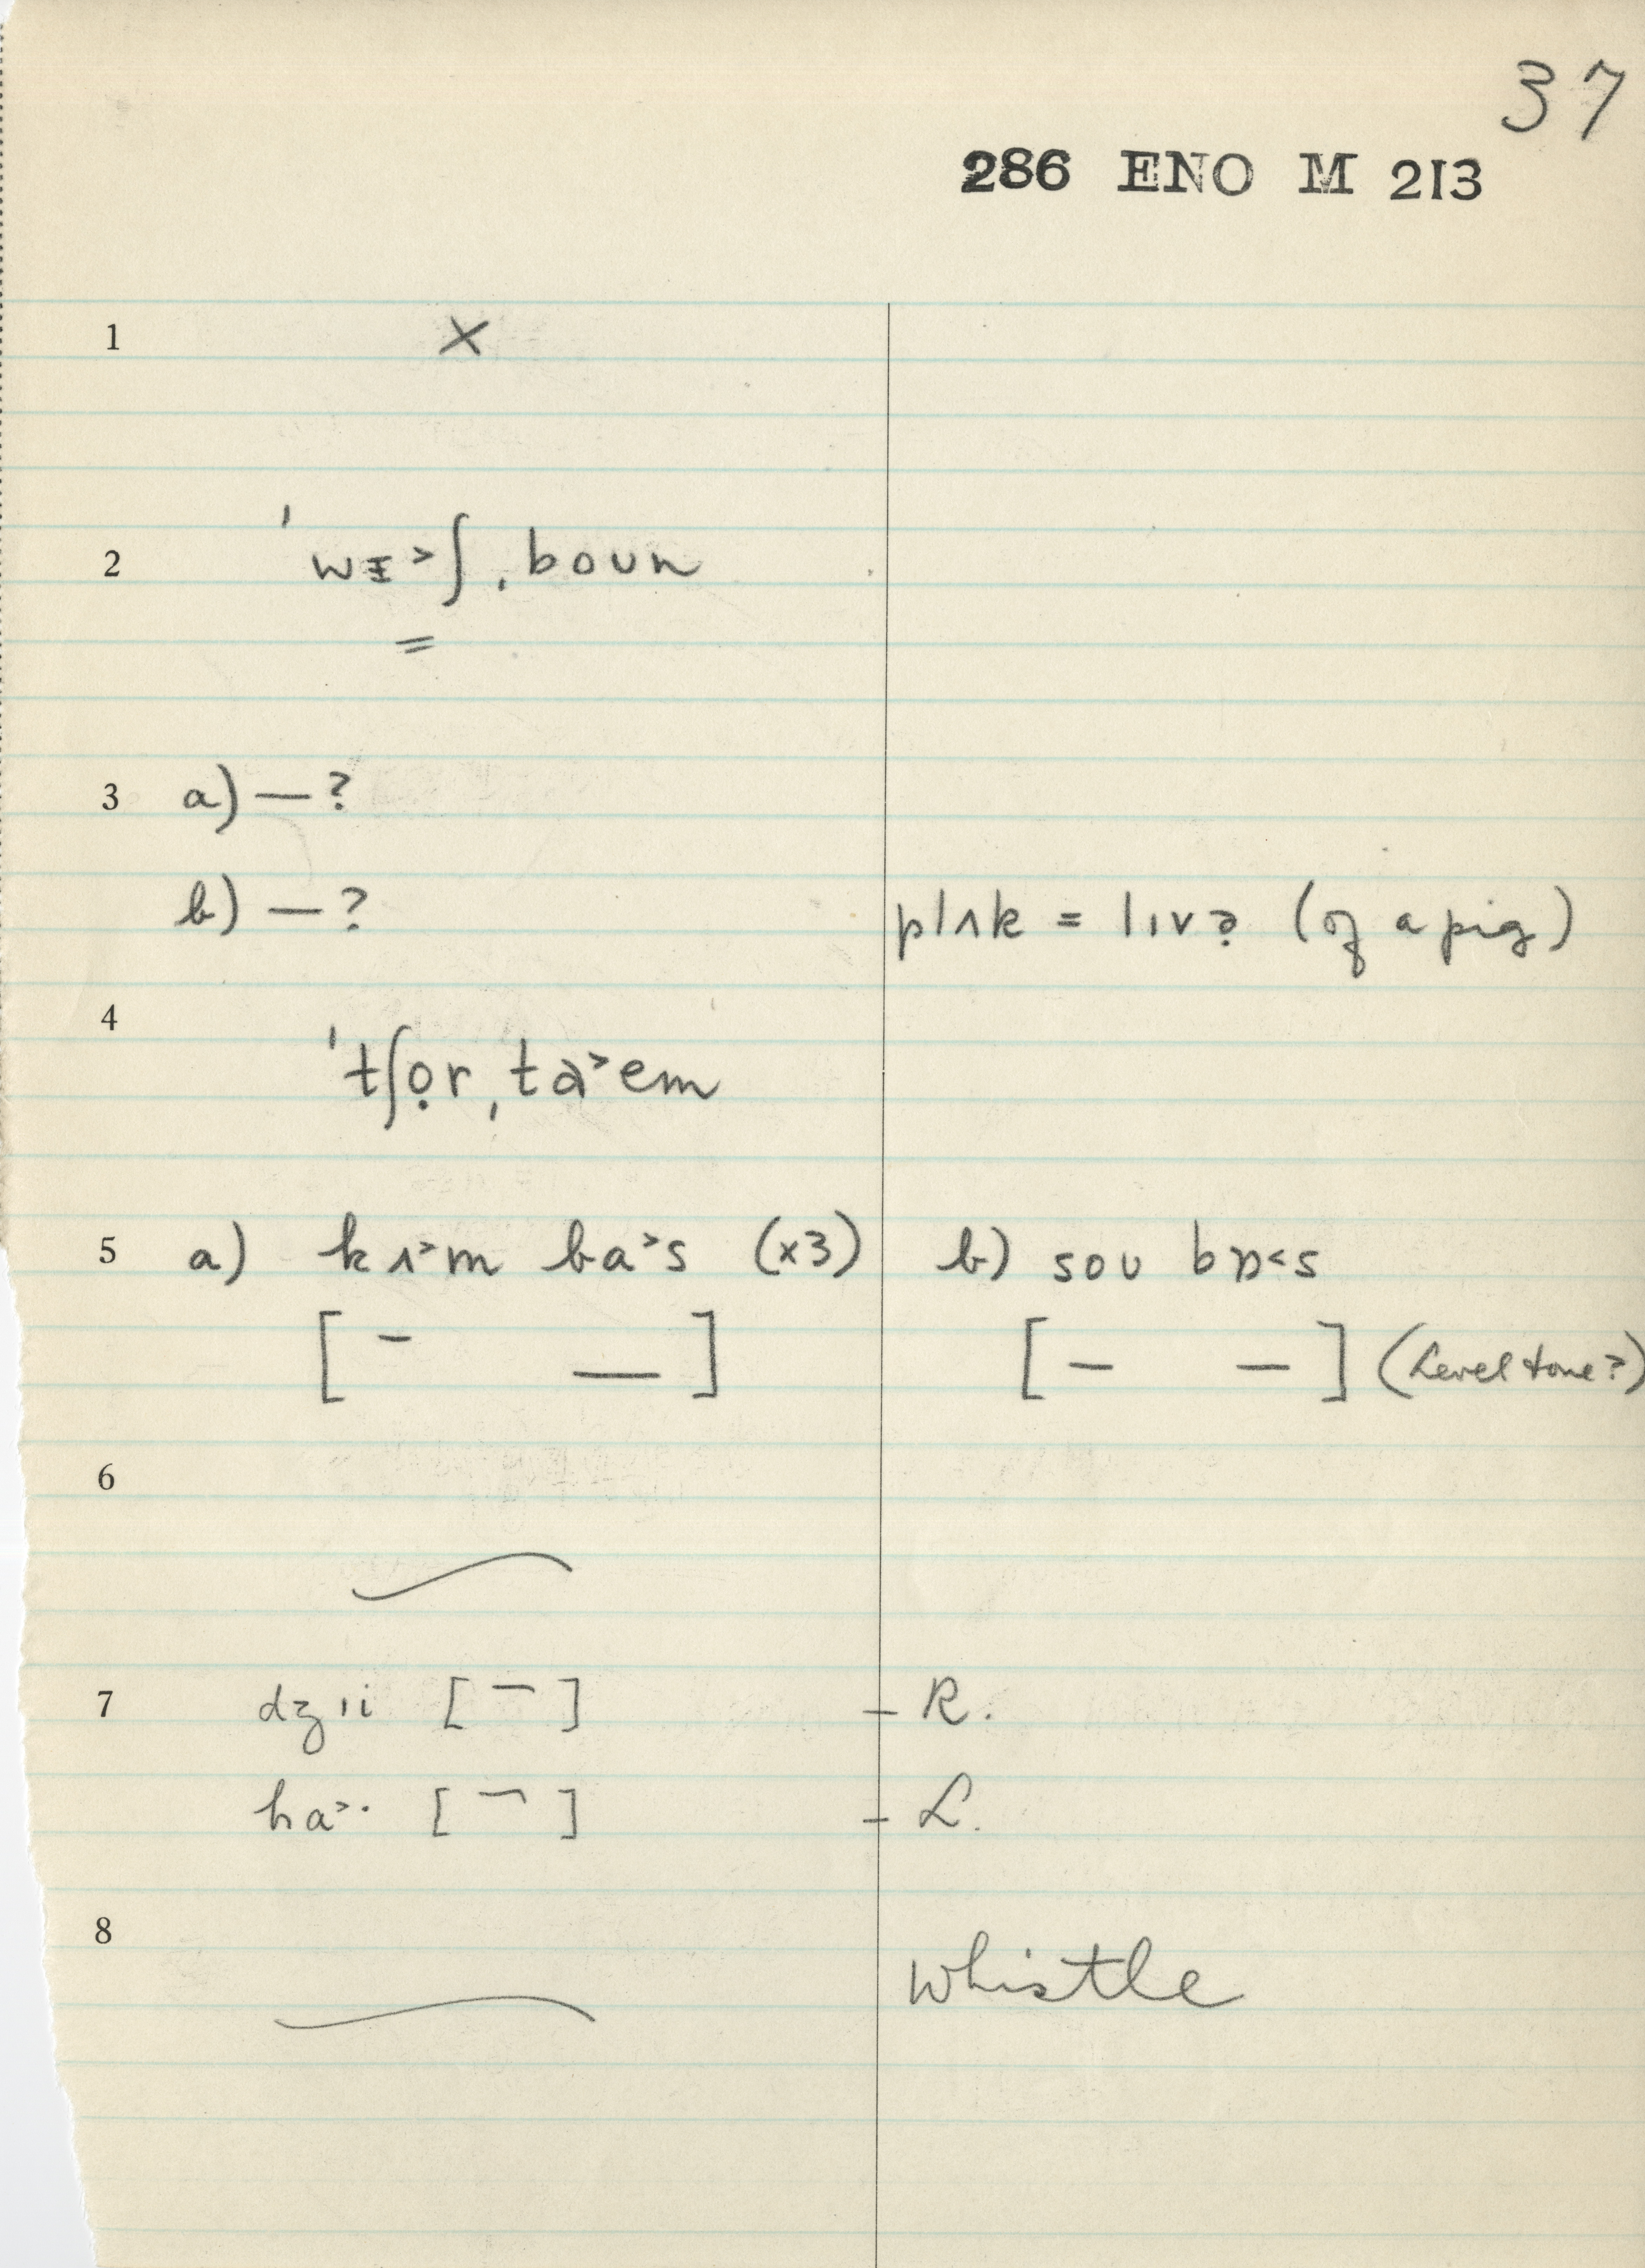 37
286 ENO M 213
1 ×
2 ˈwɪ˃ʃˌboun
=
3 a) — ?
b) — ? plʌk = lɪvə̣ (of a pig)
4 ˈtʃọrˌta˃em
5 a) kʌ˃m ba˃s (x3) b) sou bɒ˂s
[ – — ] [ – – ] (Level tone?)
6
7 dʒıi [ – ] – R.
ha˃· [ ¬ ] – L.
8 whistle